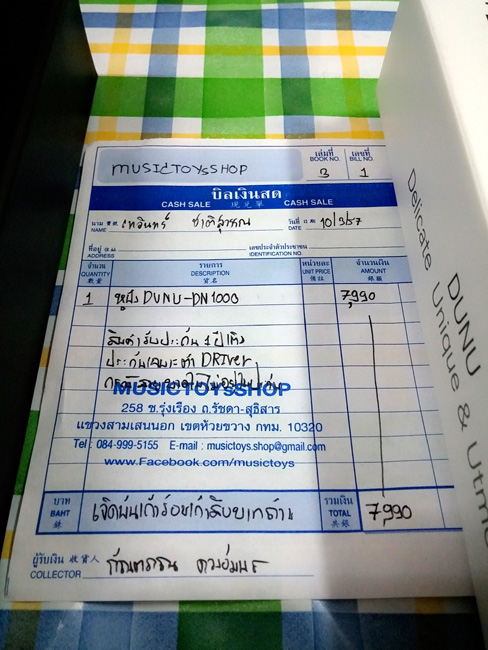 MUSICTOYsSHOP
เล่มที่ BOOK NO. 3
เลขที่ BILL NO. 1
บิลเงินสด
CASH SALE 現兌單 CASH SALE
นาม NAME ชาติสุวรรณ วันที่ DATE 10/3/57
ที่อยู่ ADDRESS เลขประจำตัวประชาชน IDENTIFICATION NO.
จำนวน QUANTITY 數量 รายการ DESCRIPTION 貨名 หน่วยละ UNIT PRICE จำนวนเงิน AMOUNT 銀額
1 หูฟัง DUNU-DN1000 7,990
สินค้ารับประกัน 1 ปีเต็ม
ประกันเฉพาะตัว DRIVER
MUSICTOYSSHOP
258 ซ.รุ่งเรือง ถ.รัชดา-สุธิสาร
แขวงสามเสนนอก เขตห้วยขวาง กทม. 10320
Tel : 084-999-5155 E-mail : musictoys.shop@gmail.com
www.Facebook.com/musictoys
บาท BAHT 銖 เจ็ดพันเก้าร้อยเก้าสิบบาทถ้วน รวมเงิน TOTAL 共銀 7,990
ผู้รับเงิน 收貨人 COLLECTOR
Delicate
Unique & Utmo
DUNU